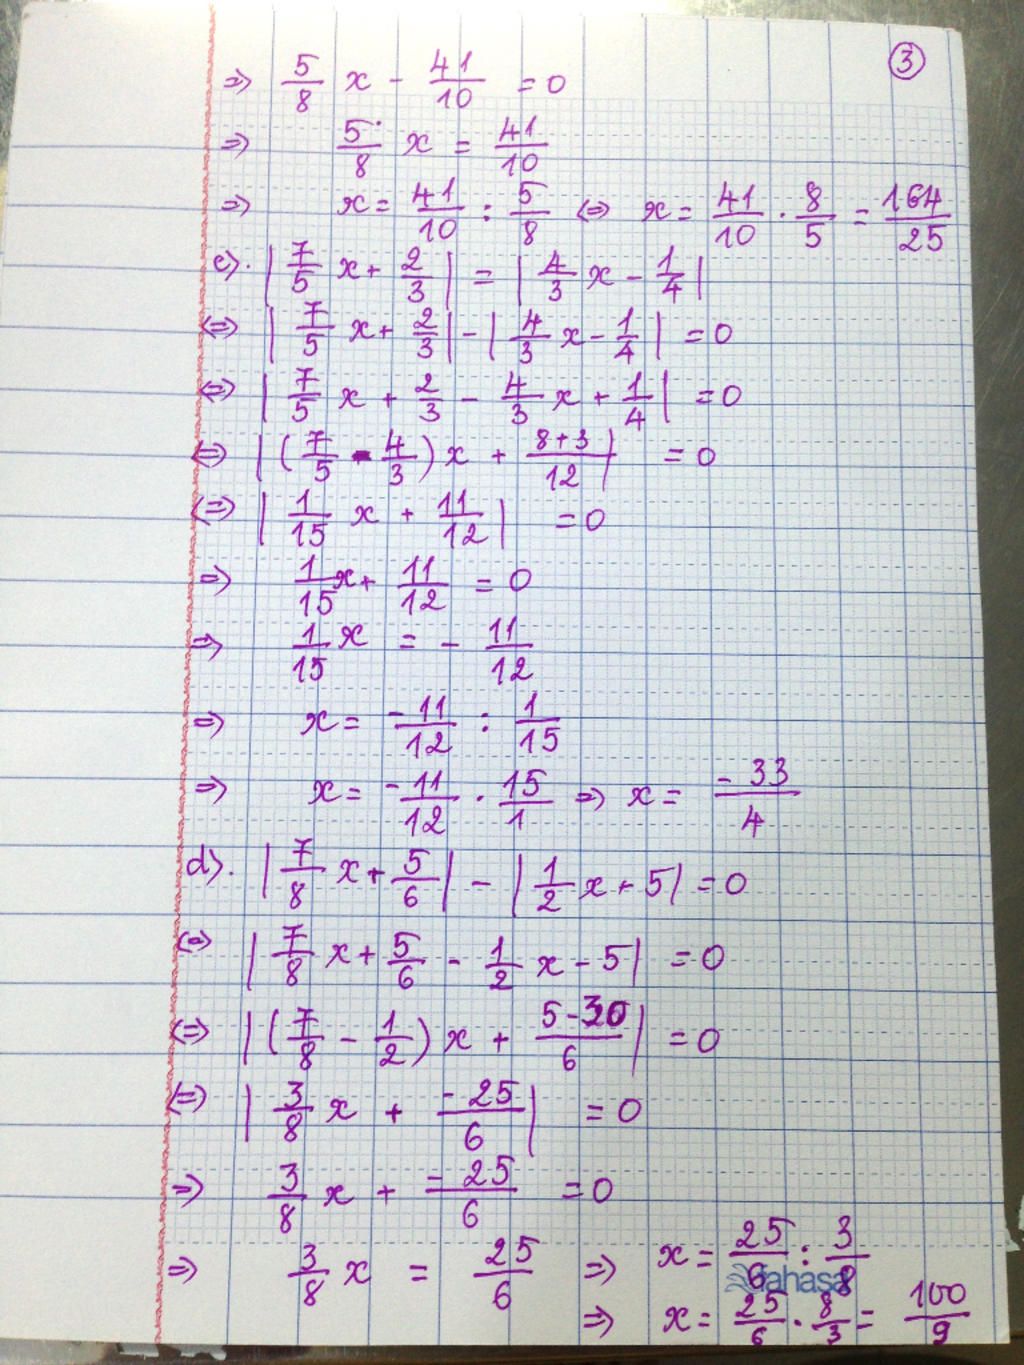 ③
=> 5/8 x - 41/10 = 0
=> 5/8 x = 41/10
=> x = 41/10 : 5/8 <=> x = 41/10 . 8/5 = 164/25
c). |7/5 x + 2/3| = |4/3 x - 1/4|
<=> |7/5 x + 2/3| - |4/3 x - 1/4| = 0
<=> |7/5 x + 2/3 - 4/3 x + 1/4| = 0
<=> |(7/5 - 4/3) x + (8+3)/12| = 0
<=> |1/15 x + 11/12| = 0
=> 1/15 x + 11/12 = 0
=> 1/15 x = - 11/12
=> x = -11/12 : 1/15
=> x = -11/12 . 15/1 => x = -33/4
d). |7/8 x + 5/6| - |1/2 x + 5| = 0
<=> |7/8 x + 5/6 - 1/2 x - 5| = 0
<=> |(7/8 - 1/2) x + (5-30)/6| = 0
<=> |3/8 x + -25/6| = 0
=> 3/8 x + -25/6 = 0
=> 3/8 x = 25/6 => x = 25/6 : 3/8
=> x = 25/6 . 8/3 = 100/9